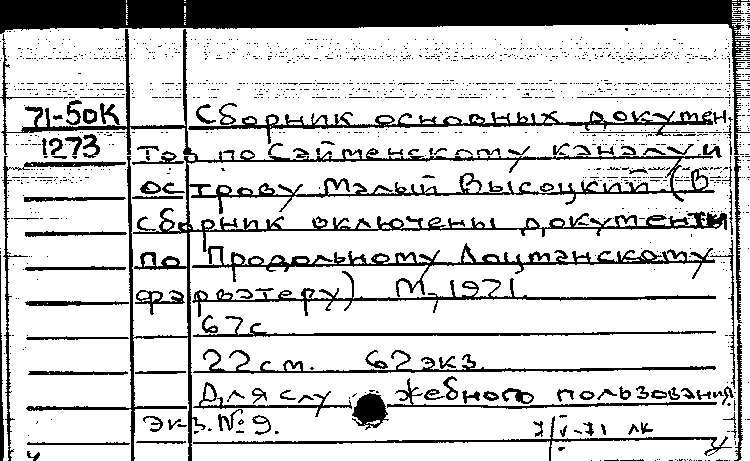 71-50К Сборник основных докумен
1273 тов по Сайменскому каналу и
острову Малый Высоцкий (В
сборник включены документы
по Продольному Лоцманскому
фарватеру). М, 1971.
67с
22см. 62экз.
Для служебного пользования
Экз. № 9.